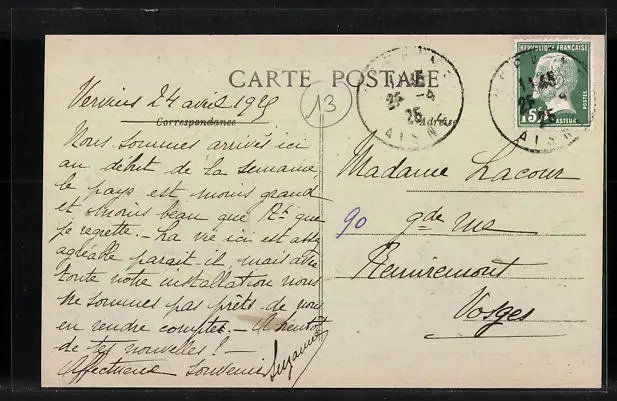 CARTE POSTALE
Correspondance
Adresse
RÉPUBLIQUE FRANÇAISE
15c
POSTES
PASTEUR
11 45
25 - 4
25
AISNE
13
Vervins 24 avril 1925
Nous sommes arrivés ici
au début de la semaine,
le pays est moins grand
et moins beau que R^t que
je regrette. - La vie ici est assez
agréable parait il, mais avec
toute notre installation nous
ne sommes pas prêts de nous
en rendre compte. - A bientôt
de tes nouvelles ! -
Affectueux souvenir
Suzanne
Madame Lacour
90 g^de rue
Remiremont
Vosges